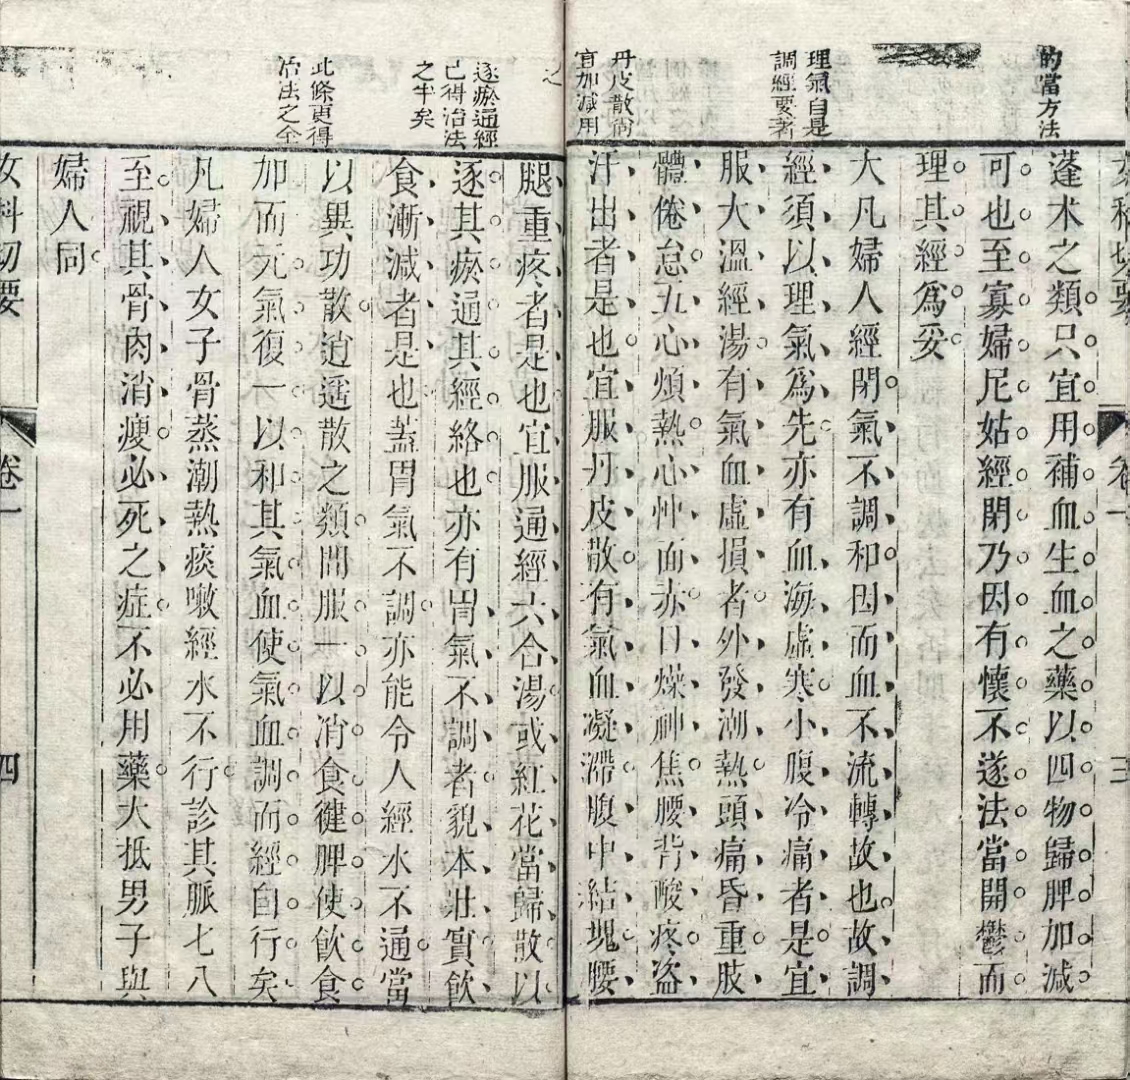 的當方法
理氣自是
調經要著
丹皮散尚
宜加減用
之
逐瘀通經
已得治法
之半矣
此條更得
治法之全
女科切要
卷一
三
蓬朮之類只宜用補血生血之藥以四物歸脾加減
可也至寡婦尼姑經閉乃因有懷不遂法當開鬱而
理其經爲妥
大凡婦人經閉氣不調和因而血不流轉故也故調
經須以理氣爲先亦有血海虛寒小腹冷痛者是宜
服大溫經湯有氣血虛損者外發潮熱頭痛昏重肢
體倦怠五心煩熱心忡面赤口燥神焦腰背酸疼盜
汗出者是也宜服丹皮散有氣血凝滯腹中結塊腰
腿重疼者是也宜服通經六合湯或紅花當歸散以
逐其瘀通其經絡也亦有胃氣不調者貌本壯實飲
食漸減者是也蓋胃氣不調亦能令人經水不通當
以異功散逍遥散之類間服一以消食健脾使飲食
加而元氣復一以和其氣血使氣血調而經自行矣
凡婦人女子骨蒸潮熱痰嗽經水不行診其脈七八
至視其骨肉消瘦必死之症不必用藥大抵男子與
婦人同
女科切要
卷一
四